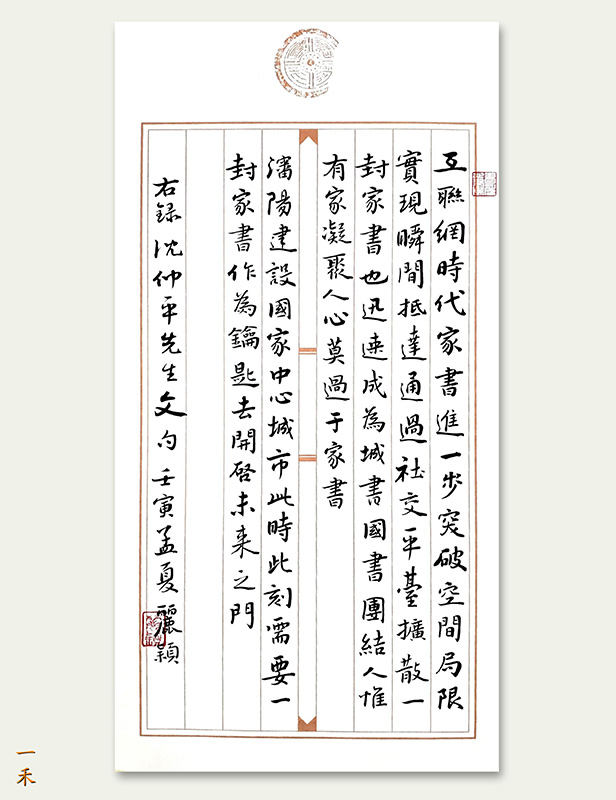 互聯網時代家書進一步突破空間局限
實現瞬間抵達通過社交平臺擴散一
封家書也迅速成為城書國書團結人惟
有家凝聚人心莫過于家書
瀋陽建設國家中心城市此時此刻需要一
封家書作為鑰匙去開啓未来之門
右録沈仲平先生文句壬寅孟夏麗穎
一禾